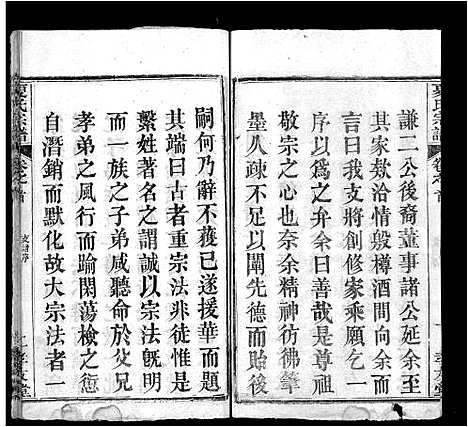 夏氏宗譜
卷之首
謙二公後裔董事諸公延余至
其家欸洽情般樽酒間向余而
言曰我族創修家乘願乞一
序以為之弁余曰善哉尊祖
敬宗之念奈余精神彷彿筆
墨久疎不足以闡先德而啟後
嗣何乃辭不獲已遂援華而題
其端曰古者重宗法非徒憐一
繫姓著名之謂誠以宗法立
而一族之子弟咸聽命於宗子
孝弟之風行而踰閑蕩檢之愆
自潛銷而默化故大宗法者一
夏氏宗譜
卷之首
孝友堂